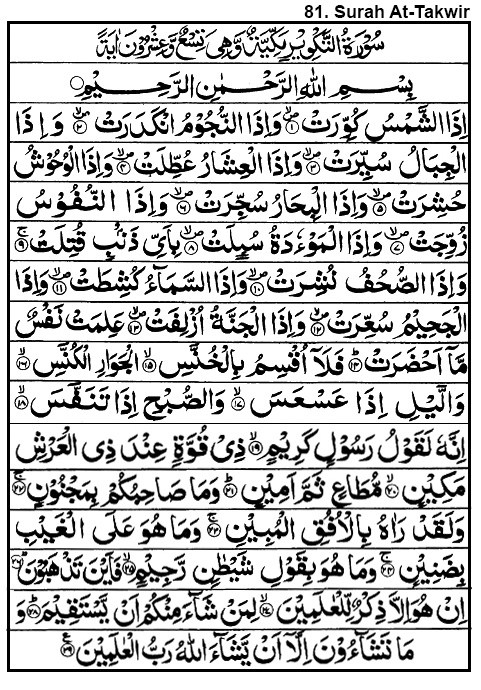 81. Surah At-Takwir
سُوْرَةُ التَّكْوِيْرِ مَكِّيَّةٌ وَّهِيَ تِسْعٌ وَّعِشْرُوْنَ اٰيَةً
بِسْمِ اللّٰهِ الرَّحْمٰنِ الرَّحِيْمِ
اِذَا الشَّمْسُ كُوِّرَتْ ۪ۙ‏﴿۱﴾ وَاِذَا النُّجُوْمُ انْكَدَرَتْ ۪ۙ‏﴿۲﴾ وَاِذَا
الْجِبَالُ سُيِّرَتْ ۪ۙ‏﴿۳﴾ وَاِذَا الْعِشَارُ عُطِّلَتْ ۪ۙ‏﴿۴﴾ وَاِذَا الْوُحُوْشُ
حُشِرَتْ ۪ۙ‏﴿۵﴾ وَاِذَا الْبِحَارُ سُجِّرَتْ ۪ۙ‏﴿۶﴾ وَاِذَا النُّفُوْسُ
زُوِّجَتْ ۪ۙ‏﴿۷﴾ وَاِذَا الْمَوْءٗدَةُ سُىِٕلَتْ ۪ۙ‏﴿۸﴾ بِاَيِّ ذَنْۢبٍ قُتِلَتْ ۚ‏﴿۹﴾
وَاِذَا الصُّحُفُ نُشِرَتْ ۪ۙ‏﴿۱۰﴾ وَاِذَا السَّمَآءُ كُشِطَتْ ۪ۙ‏﴿۱۱﴾ وَاِذَا
الْجَحِيْمُ سُعِّرَتْ ۪ۙ‏﴿۱۲﴾ وَاِذَا الْجَنَّةُ اُزْلِفَتْ ۪ۙ‏﴿۱۳﴾ عَلِمَتْ نَفْسٌ
مَّاۤ اَحْضَرَتْ ؕ‏﴿۱۴﴾ فَلَاۤ اُقْسِمُ بِالْخُنَّسِ ۙ‏﴿۱۵﴾ الْجَوَارِ الْكُنَّسِ ۙ‏﴿۱۶﴾
وَالَّيْلِ اِذَا عَسْعَسَ ۙ‏﴿۱۷﴾ وَالصُّبْحِ اِذَا تَنَفَّسَ ۙ‏﴿۱۸﴾
اِنَّهٗ لَقَوْلُ رَسُوْلٍ كَرِيْمٍ ۙ‏﴿۱۹﴾ ذِيْ قُوَّةٍ عِنْدَ ذِي الْعَرْشِ
مَكِيْنٍ ۙ‏﴿۲۰﴾ مُّطَاعٍ ثَمَّ اَمِيْنٍ ؕ‏﴿۲۱﴾ وَمَا صَاحِبُكُمْ بِمَجْنُوْنٍ ۚ‏﴿۲۲﴾
وَلَقَدْ رَاٰهُ بِالْاُفُقِ الْمُبِيْنِ ۚ‏﴿۲۳﴾ وَمَا هُوَ عَلَى الْغَيْبِ
بِضَنِيْنٍ ۚ‏﴿۲۴﴾ وَمَا هُوَ بِقَوْلِ شَيْطٰنٍ رَّجِيْمٍ ۙ‏﴿۲۵﴾ فَاَيْنَ تَذْهَبُوْنَ ؕ‏﴿۲۶﴾
اِنْ هُوَ اِلَّا ذِكْرٌ لِّلْعٰلَمِيْنَ ۙ‏﴿۲۷﴾ لِمَنْ شَآءَ مِنْكُمْ اَنْ يَّسْتَقِيْمَ ؕ‏﴿۲۸﴾ وَ
مَا تَشَآءُوْنَ اِلَّاۤ اَنْ يَّشَآءَ اللّٰهُ رَبُّ الْعٰلَمِيْنَ ‏﴿۲۹﴾